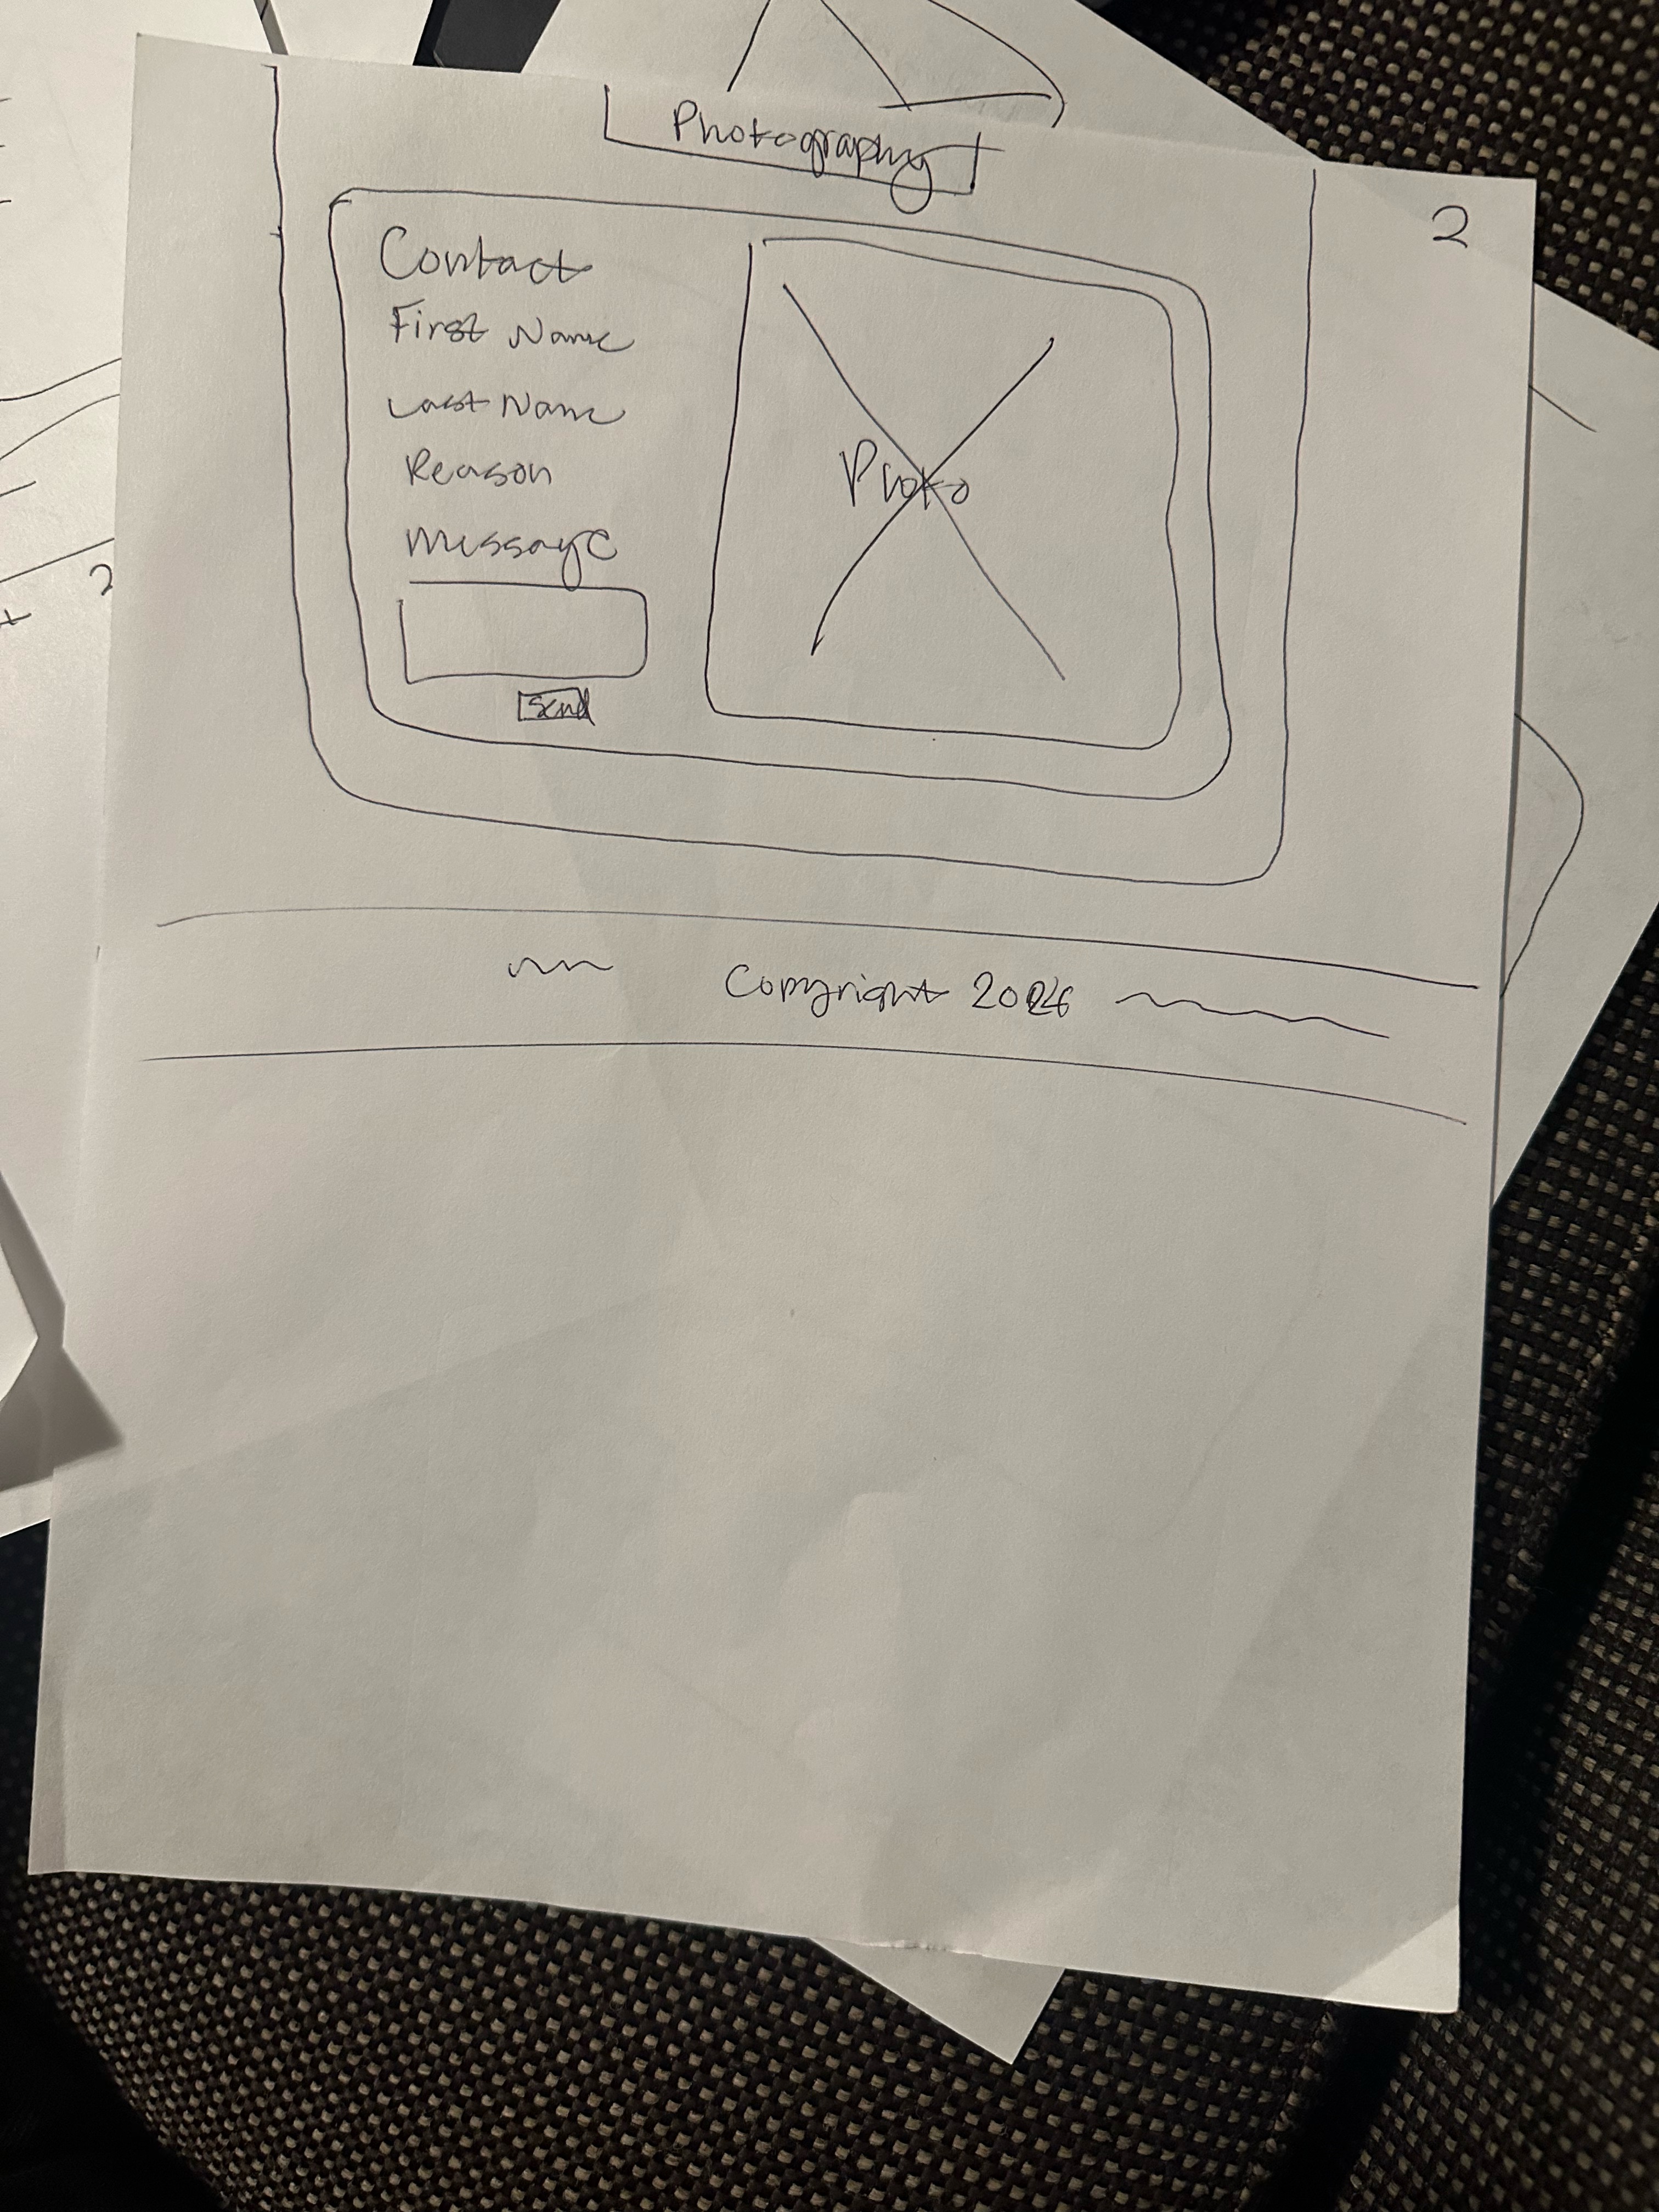 Photography
2
Contact
First Name
Last Name
Reason
Message
Photo
Send
Copyright 2026
2